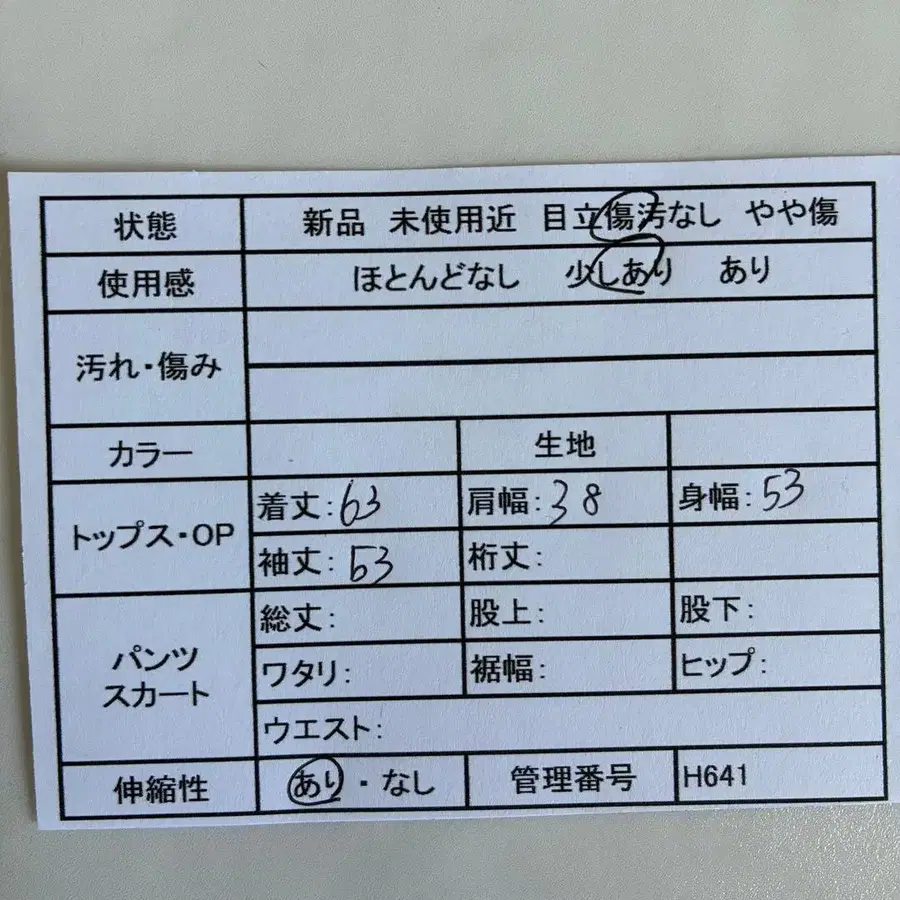 状態 新品 未使用近 目立傷汚なし やや傷
使用感 ほとんどなし 少しあり あり
汚れ・傷み
カラー 生地
トップス・OP 着丈:63 肩幅:38 身幅:53
袖丈:53 桁丈:
パンツ スカート 総丈: 股上: 股下:
ワタリ: 裾幅: ヒップ:
ウエスト:
伸縮性 あり・なし 管理番号 H641